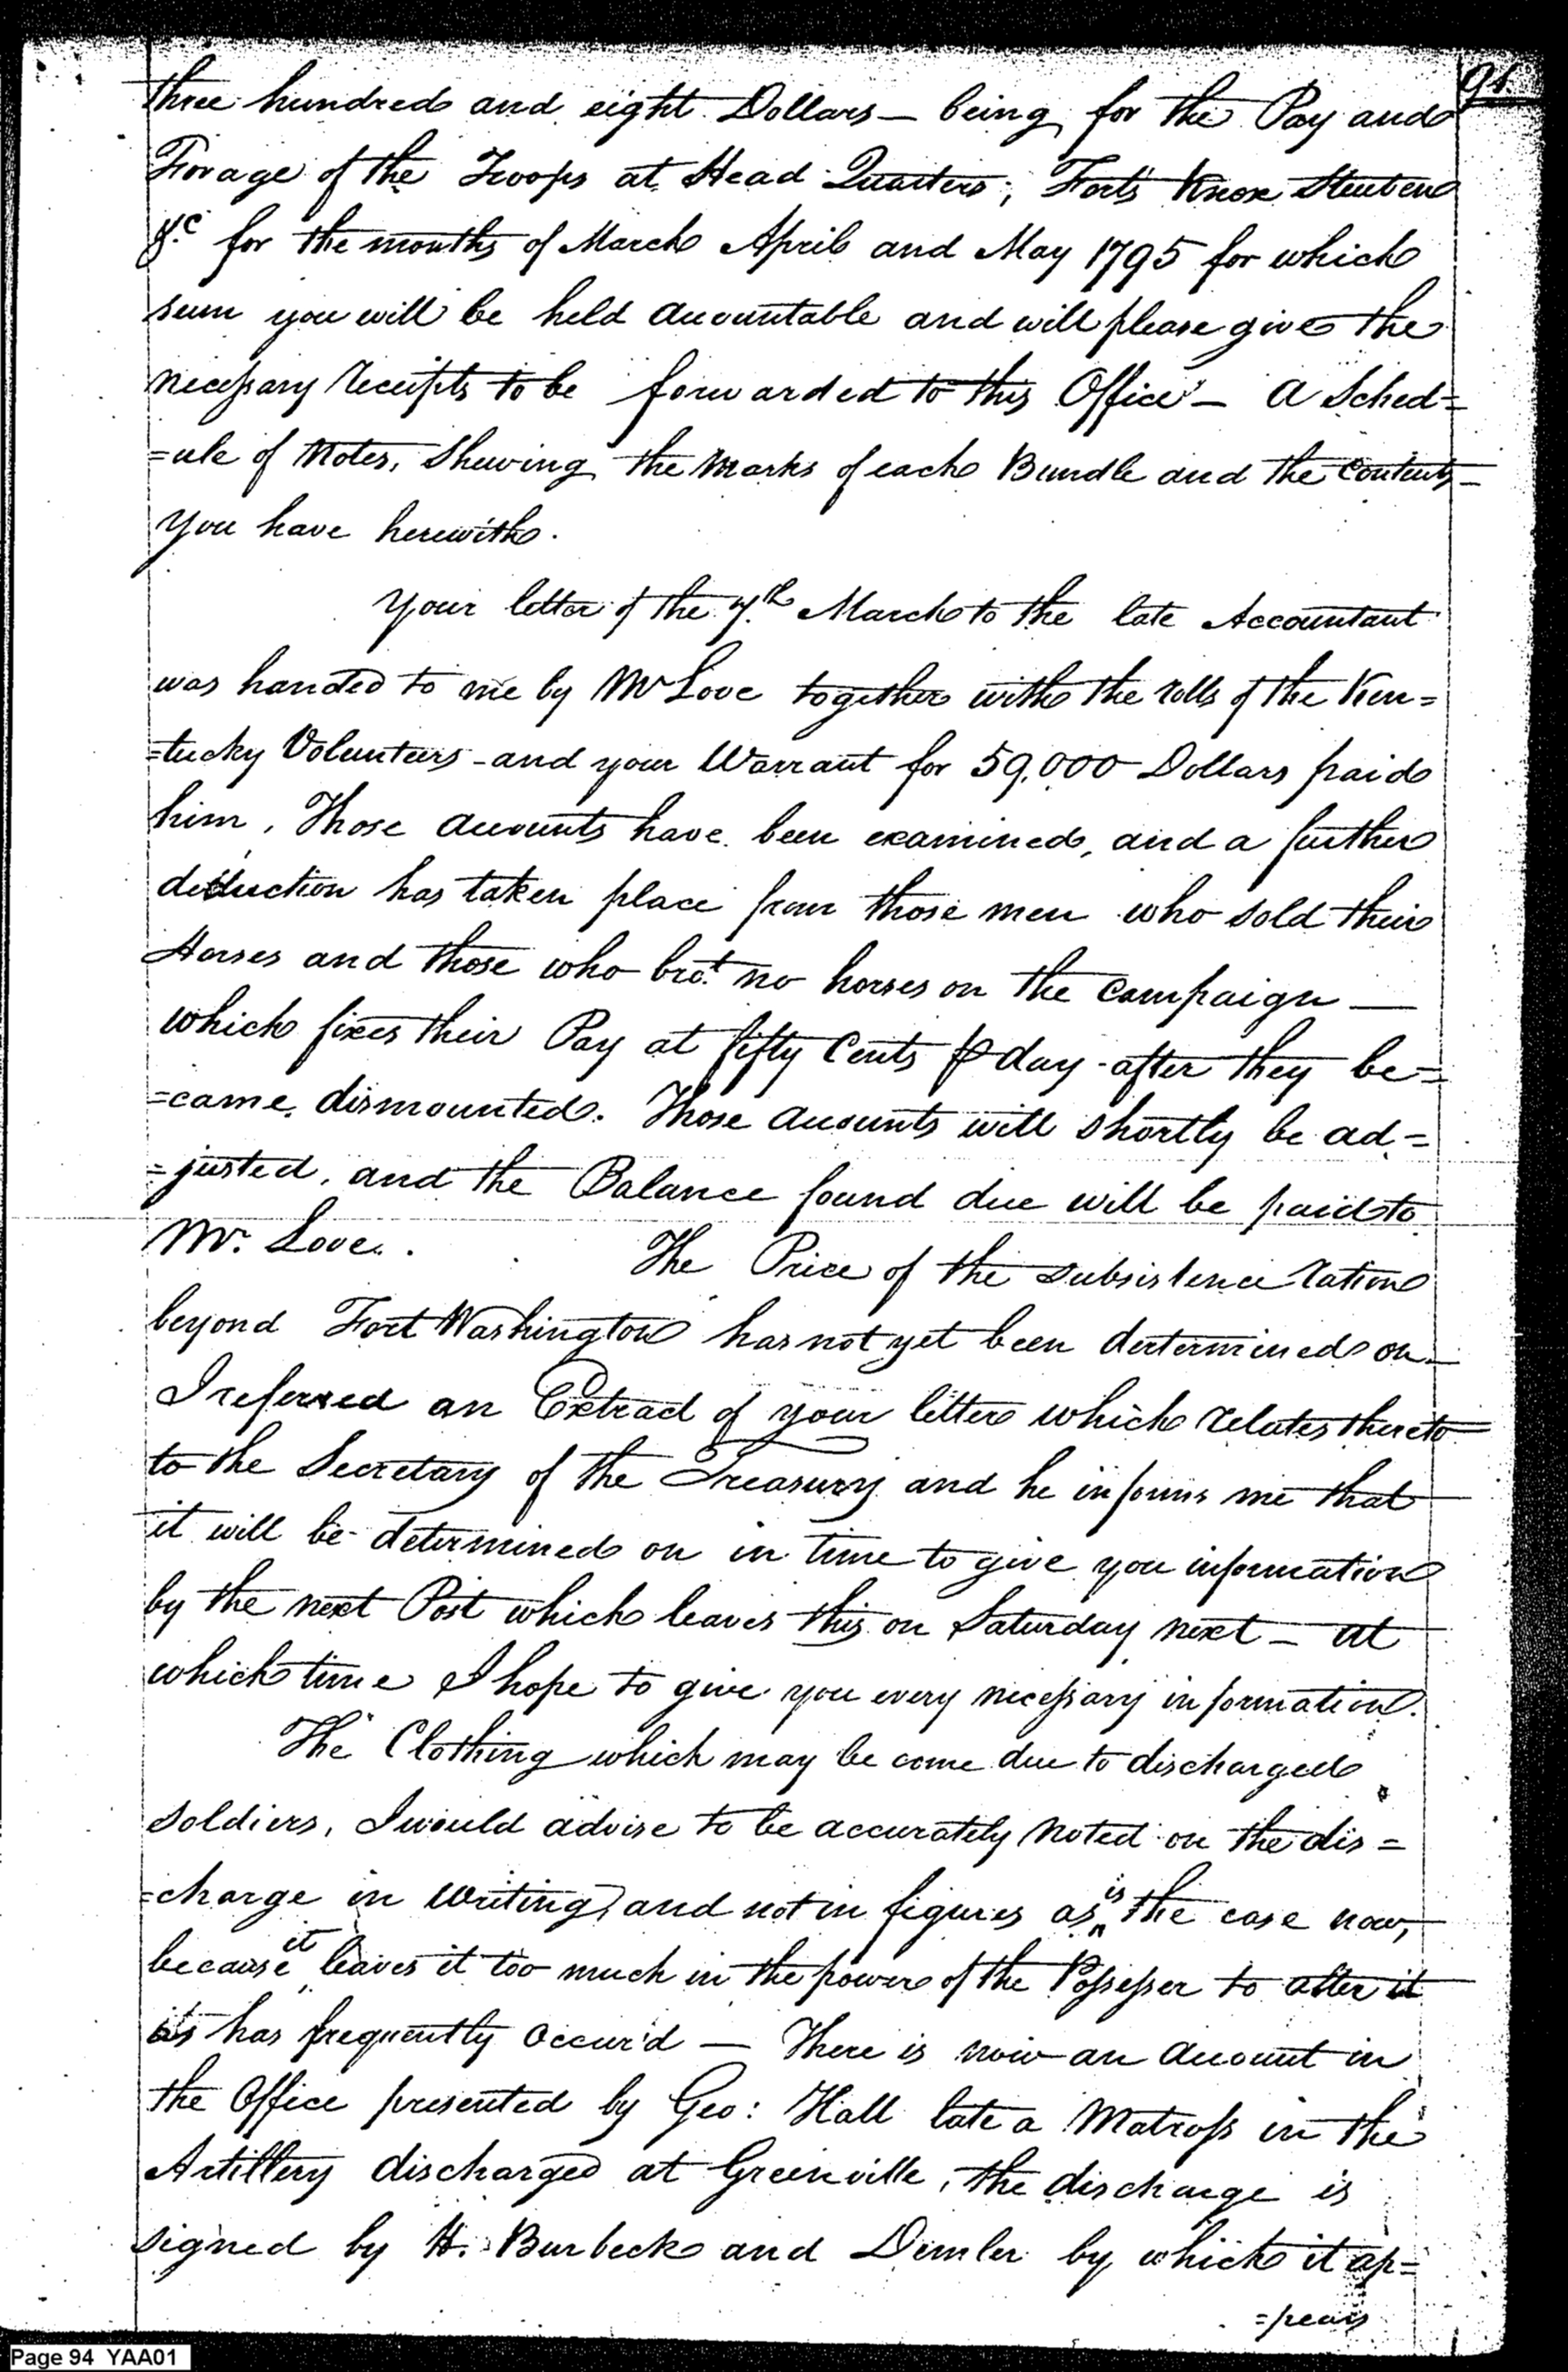 91.
three hundred and eight Dollars — being for the Pay and
Forage of the Troops at Head Quarters; Forts Knox Steuben
&c for the months of March April and May 1795 for which
sum you will be held accountable and will please give the
necessary receipts to be forwarded to this Office — A Sched=
=ule of Notes, Shewing the Marks of each Bundle and the Contents
you have herewith.
Your letter of the 7th March to the late Accountant
was handed to me by Mr Love together with the rolls of the Ken=
=tucky Volunteers - and your Warrant for 59,000 Dollars paid
him, Those accounts have been examined, and a further
deduction has taken place from those men who sold their
Horses and those who brot no horses on the campaign —
which fixes their Pay at fifty Cents ⅌ day - after they be=
=came dismounted. Those accounts will shortly be ad=
=justed, and the Balance found due will be paid to
Mr. Love. The Price of the subsistence ration
beyond Fort Washington has not yet been dertermined on —
I referred an Extract of your letter which relates thereto
to the Secretary of the Treasury and he informs me that
it will be determined on in time to give you information
by the next Post which leaves this on Saturday next — at
which time I hope to give you every necessary information.
The Clothing which may be come due to discharged
soldiers, I would advise to be accurately noted on the dis=
=charge in writing, and not in figures as is the case now,
because it leaves it too much in the power of the Possesser to alter it
as has frequently occur'd — There is now an account in
the Office presented by Geo: Hall late a Matross in the
Artillery discharged at Greenville, the discharge is
signed by H. Burbeck and Demler by which it ap=
=pears
Page 94 YAA01